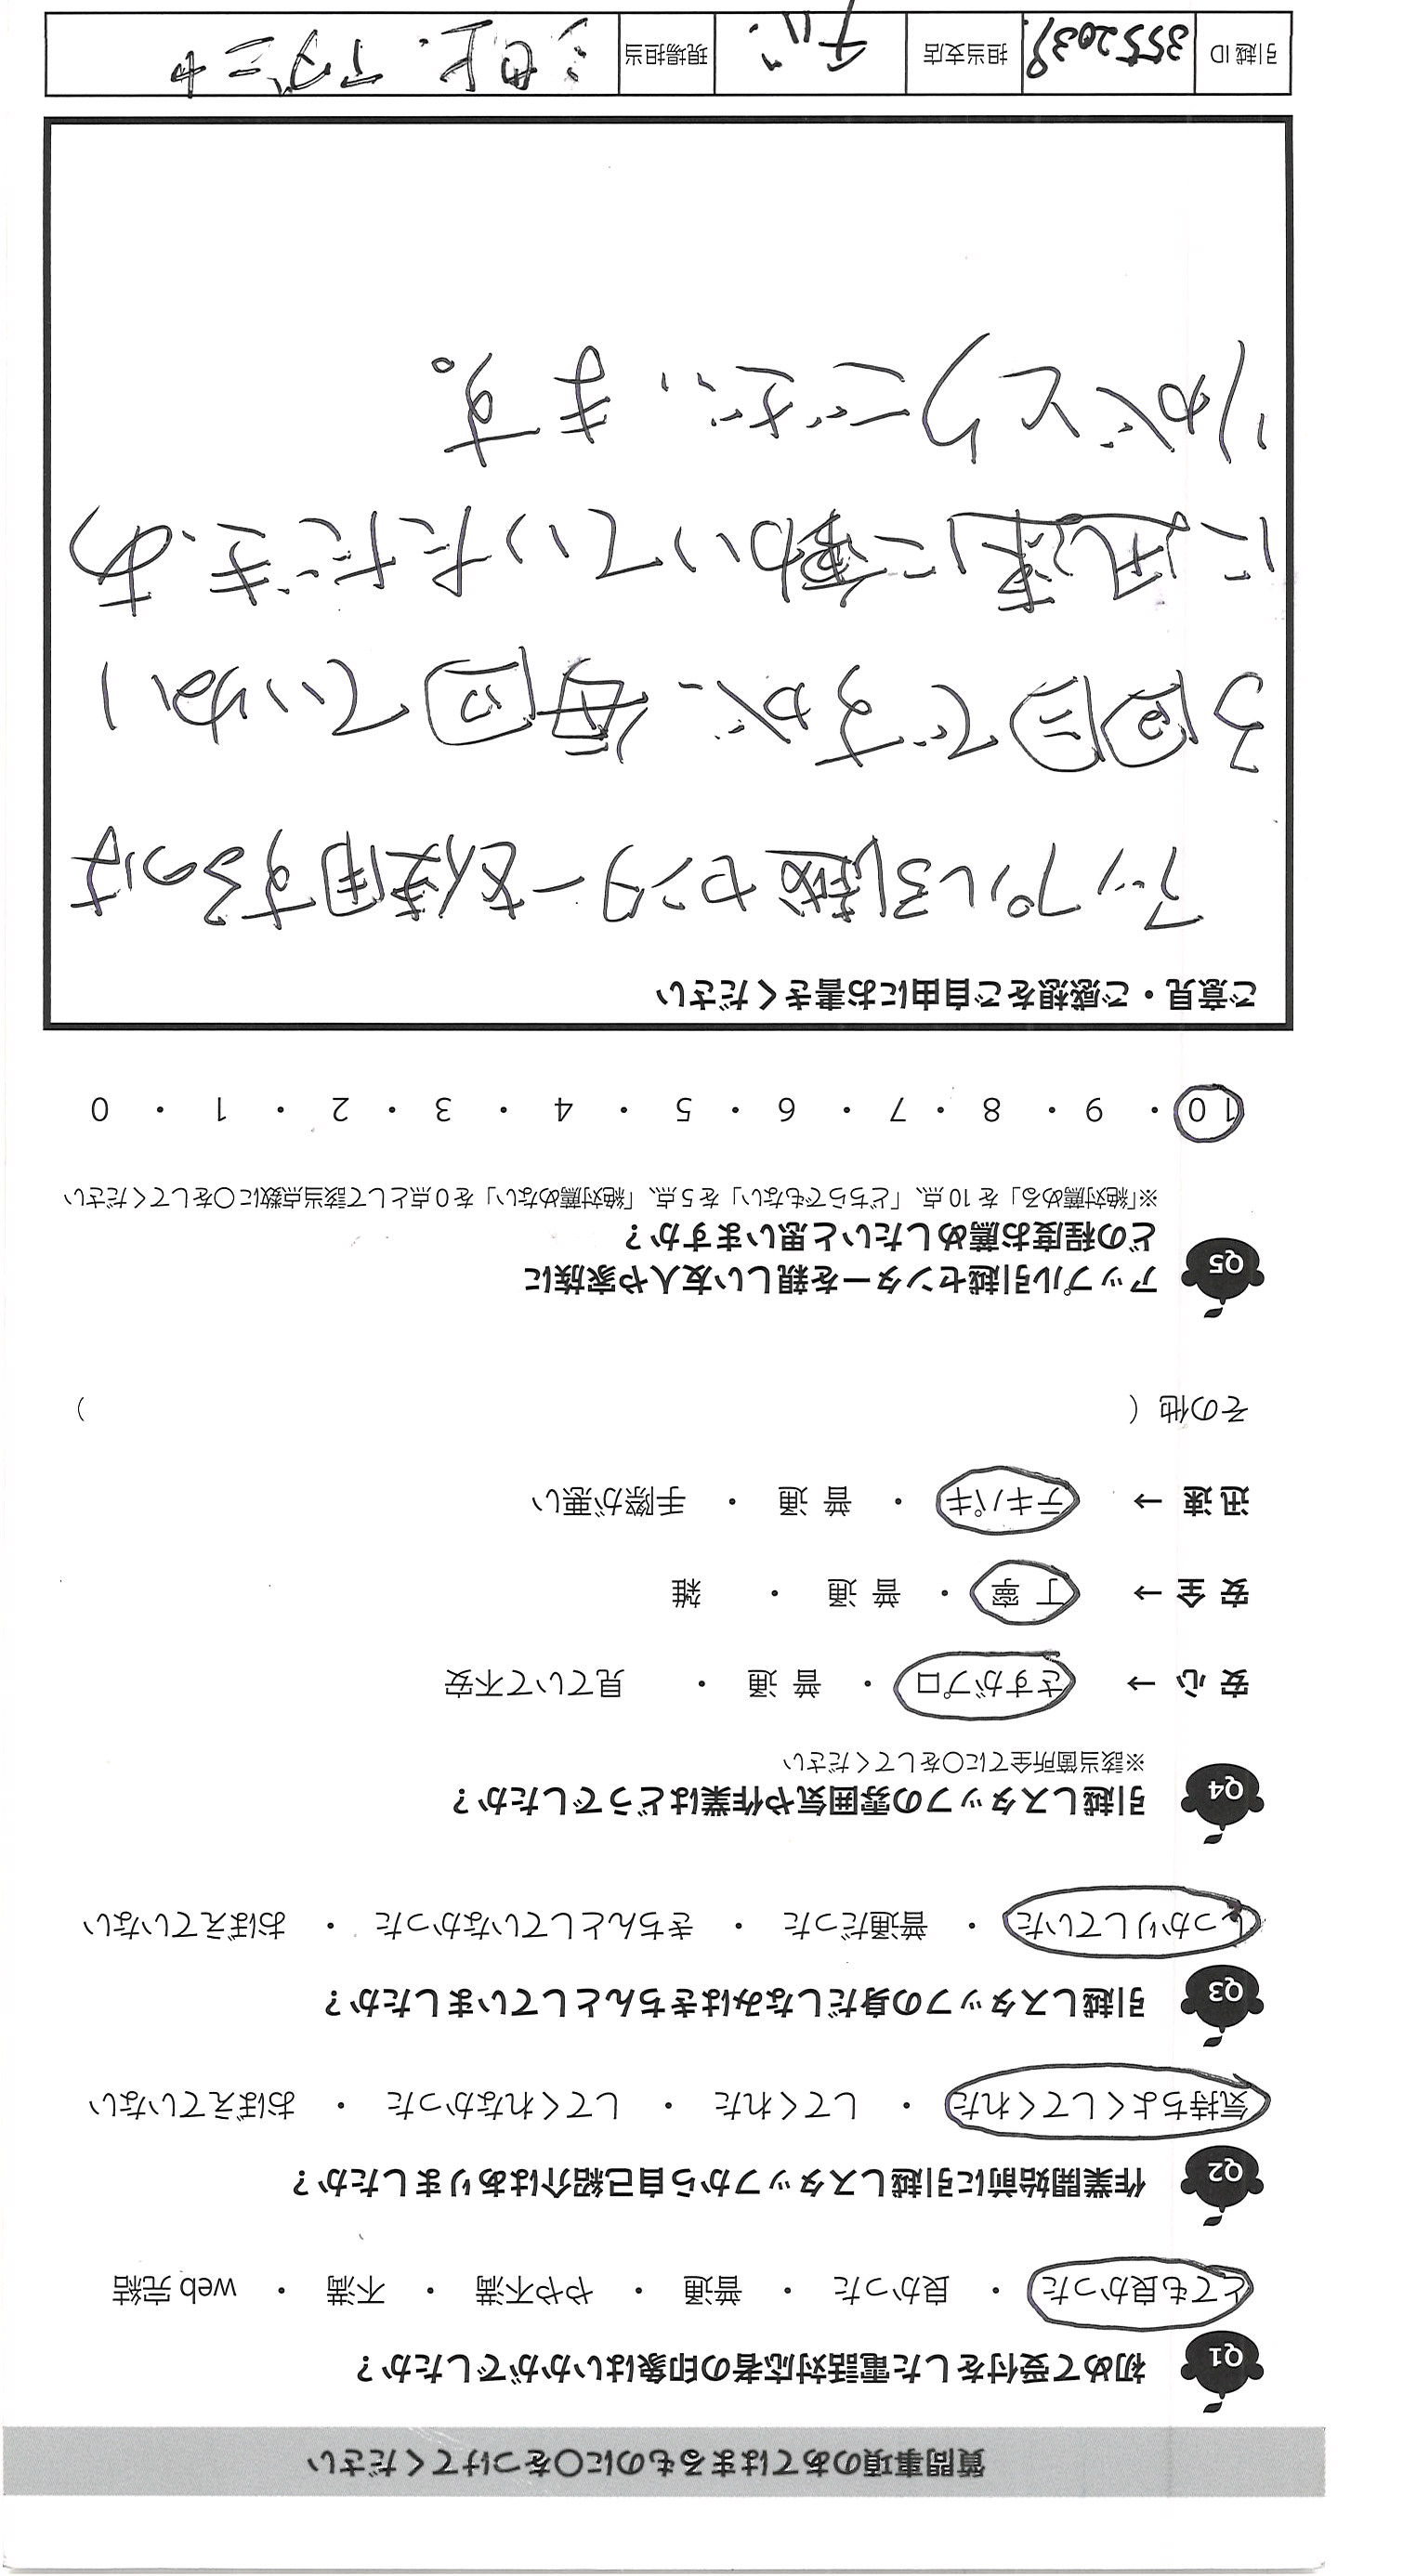 質問事項のあてはまるものに○をつけてください
Q1 初めて受付をした電話対応者の印象はいかがでしたか？
とても良かった ・ 良かった ・ 普通 ・ やや不満 ・ 不満 ・ web 完結
Q2 作業開始前に引越しスタッフから自己紹介はありましたか？
気持ちよくしてくれた ・ してくれた ・ してくれなかった ・ おぼえていない
Q3 引越しスタッフの身だしなみはきちんとしていましたか？
しっかりしていた ・ 普通だった ・ きちんとしていなかった ・ おぼえていない
Q4 引越しスタッフの雰囲気や作業はどうでしたか？
※該当箇所全てに○をしてください
安 心 → さすがプロ ・ 普 通 ・ 見ていて不安
安 全 → 丁 寧 ・ 普 通 ・ 雑
迅 速 → テキパキ ・ 普 通 ・ 手際が悪い
その他（ ）
Q5 アップル引越センターを親しい友人や家族に
どの程度お薦めしたいと思いますか？
※「絶対薦める」を 10 点、「どちらでもない」を 5 点、「絶対薦めない」を 0 点として該当点数に○をしてください
10 ・ 9 ・ 8 ・ 7 ・ 6 ・ 5 ・ 4 ・ 3 ・ 2 ・ 1 ・ 0
ご意見・ご感想をご自由にお書きください
アップル引越センターを使用するのは
3回目ですが、毎回ていねい
に迅速に働いていただき、あ
りがとうございます。
引越 ID 35552039 担当支店 現場担当